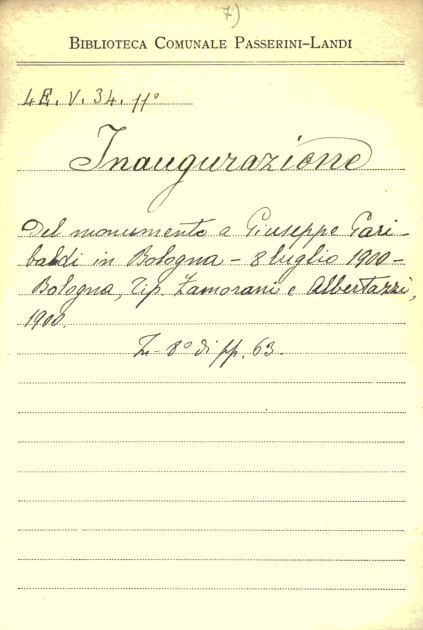 7)
BIBLIOTECA COMUNALE PASSERINI-LANDI
4E. V. 34. 11°
Inaugurazione
del monumento a Giuseppe Gari-
baldi in Bologna - 8 luglio 1900 -
Bologna, Tip. Zamorani e Albertazzi,
1900.
In- 8° di pp. 63.